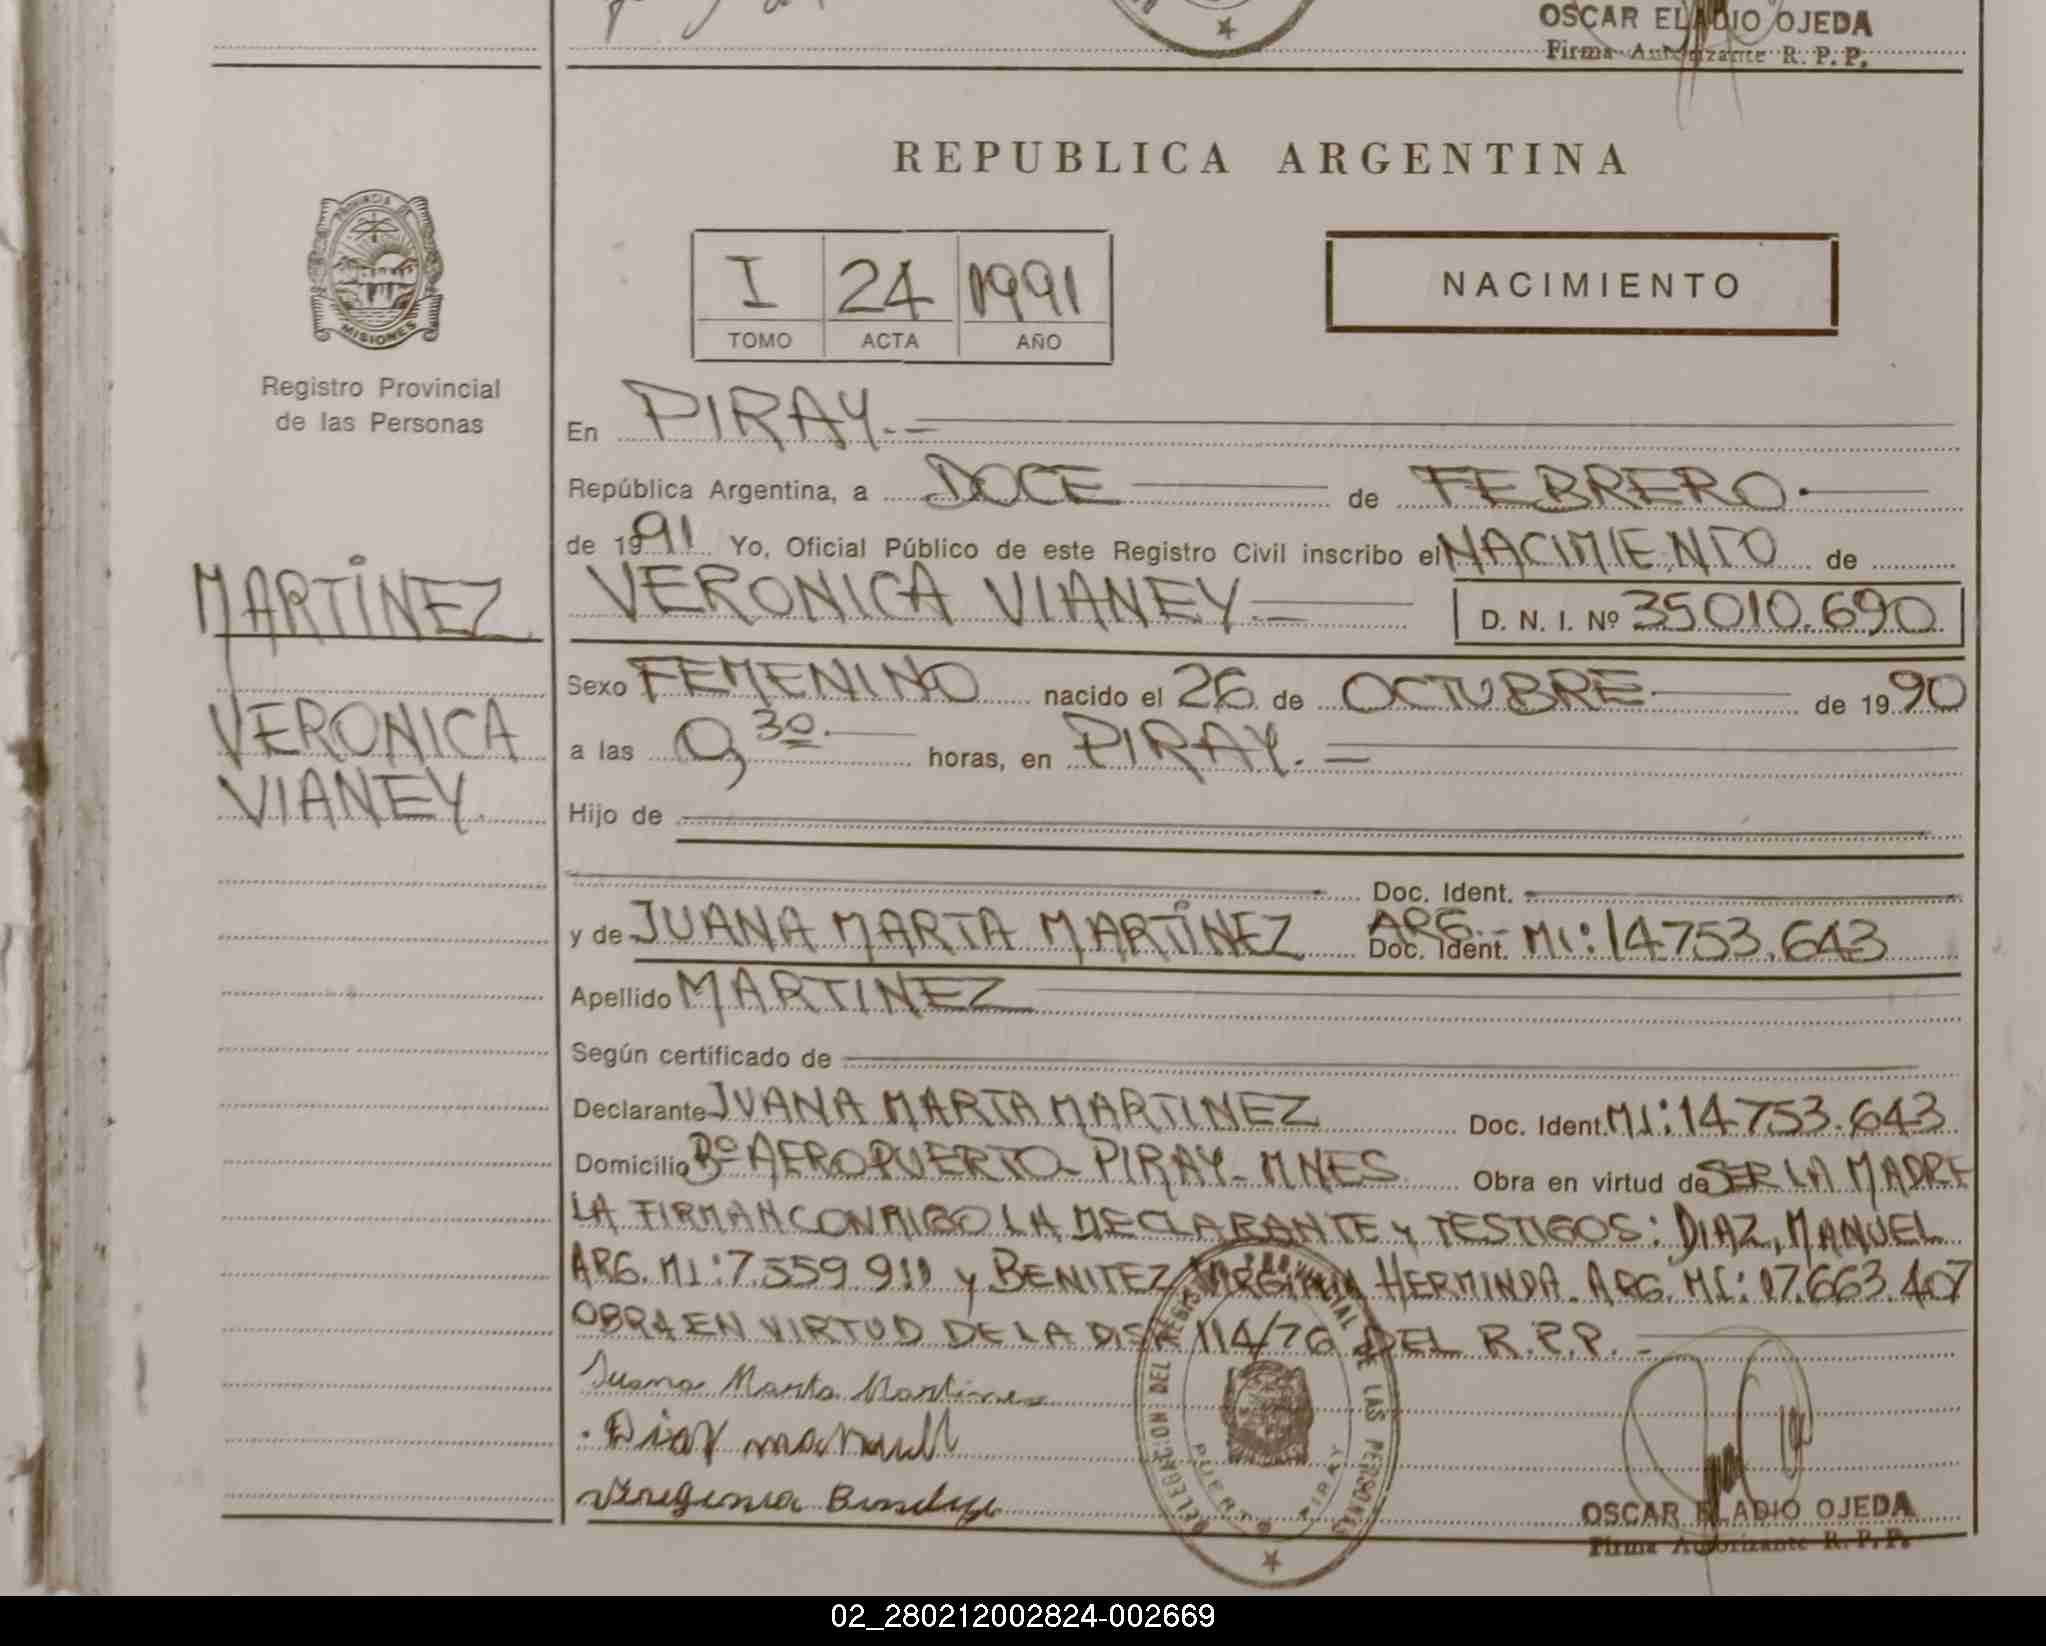 OSCAR ELADIO OJEDA
Firma Autorizante R. P. P.
REPUBLICA ARGENTINA
PROVINCIA DE
MISIONES
Registro Provincial
de las Personas
I 24 1991
TOMO ACTA AÑO
NACIMIENTO
En PIRAY.-
República Argentina, a DOCE de FEBRERO.
de 1991 Yo, Oficial Público de este Registro Civil inscribo el NACIMIENTO de
MARTINEZ
VERONICA VIANEY.
VERONICA VIANEY.= D. N. I. Nº 35010.690
Sexo FEMENINO nacido el 26 de OCTUBRE de 1990
a las 0,30. horas, en PIRAY.=
Hijo de
Doc. Ident.
y de JUANA MARTA MARTINEZ ARG.- Doc. Ident. MI: 14753.643
Apellido MARTINEZ
Según certificado de
Declarante JUANA MARTA MARTINEZ Doc. Ident. MI: 14753.643
Domicilio Bº AEROPUERTO- PIRAY- MNES Obra en virtud de SER LA MADRE
LA FIRMAN CONMIGO LA DECLARANTE Y TESTIGOS: DIAZ, MANUEL
ARG. MI: 7.559 911 y BENITEZ VIRGINIA HERMINDA. ARG. MI: 17.663.407
OBRA EN VIRTUD DE LA DISP. 114/76 DEL R.P.P.-
Juana Marta Martinez
Diaz manuell
DELEGACION DEL REGISTRO PROVINCIAL DE LAS PERSONAS
PUERTO PIRAY
OSCAR ELADIO OJEDA
Firma Autorizante R. P. P.
02_280212002824-002669